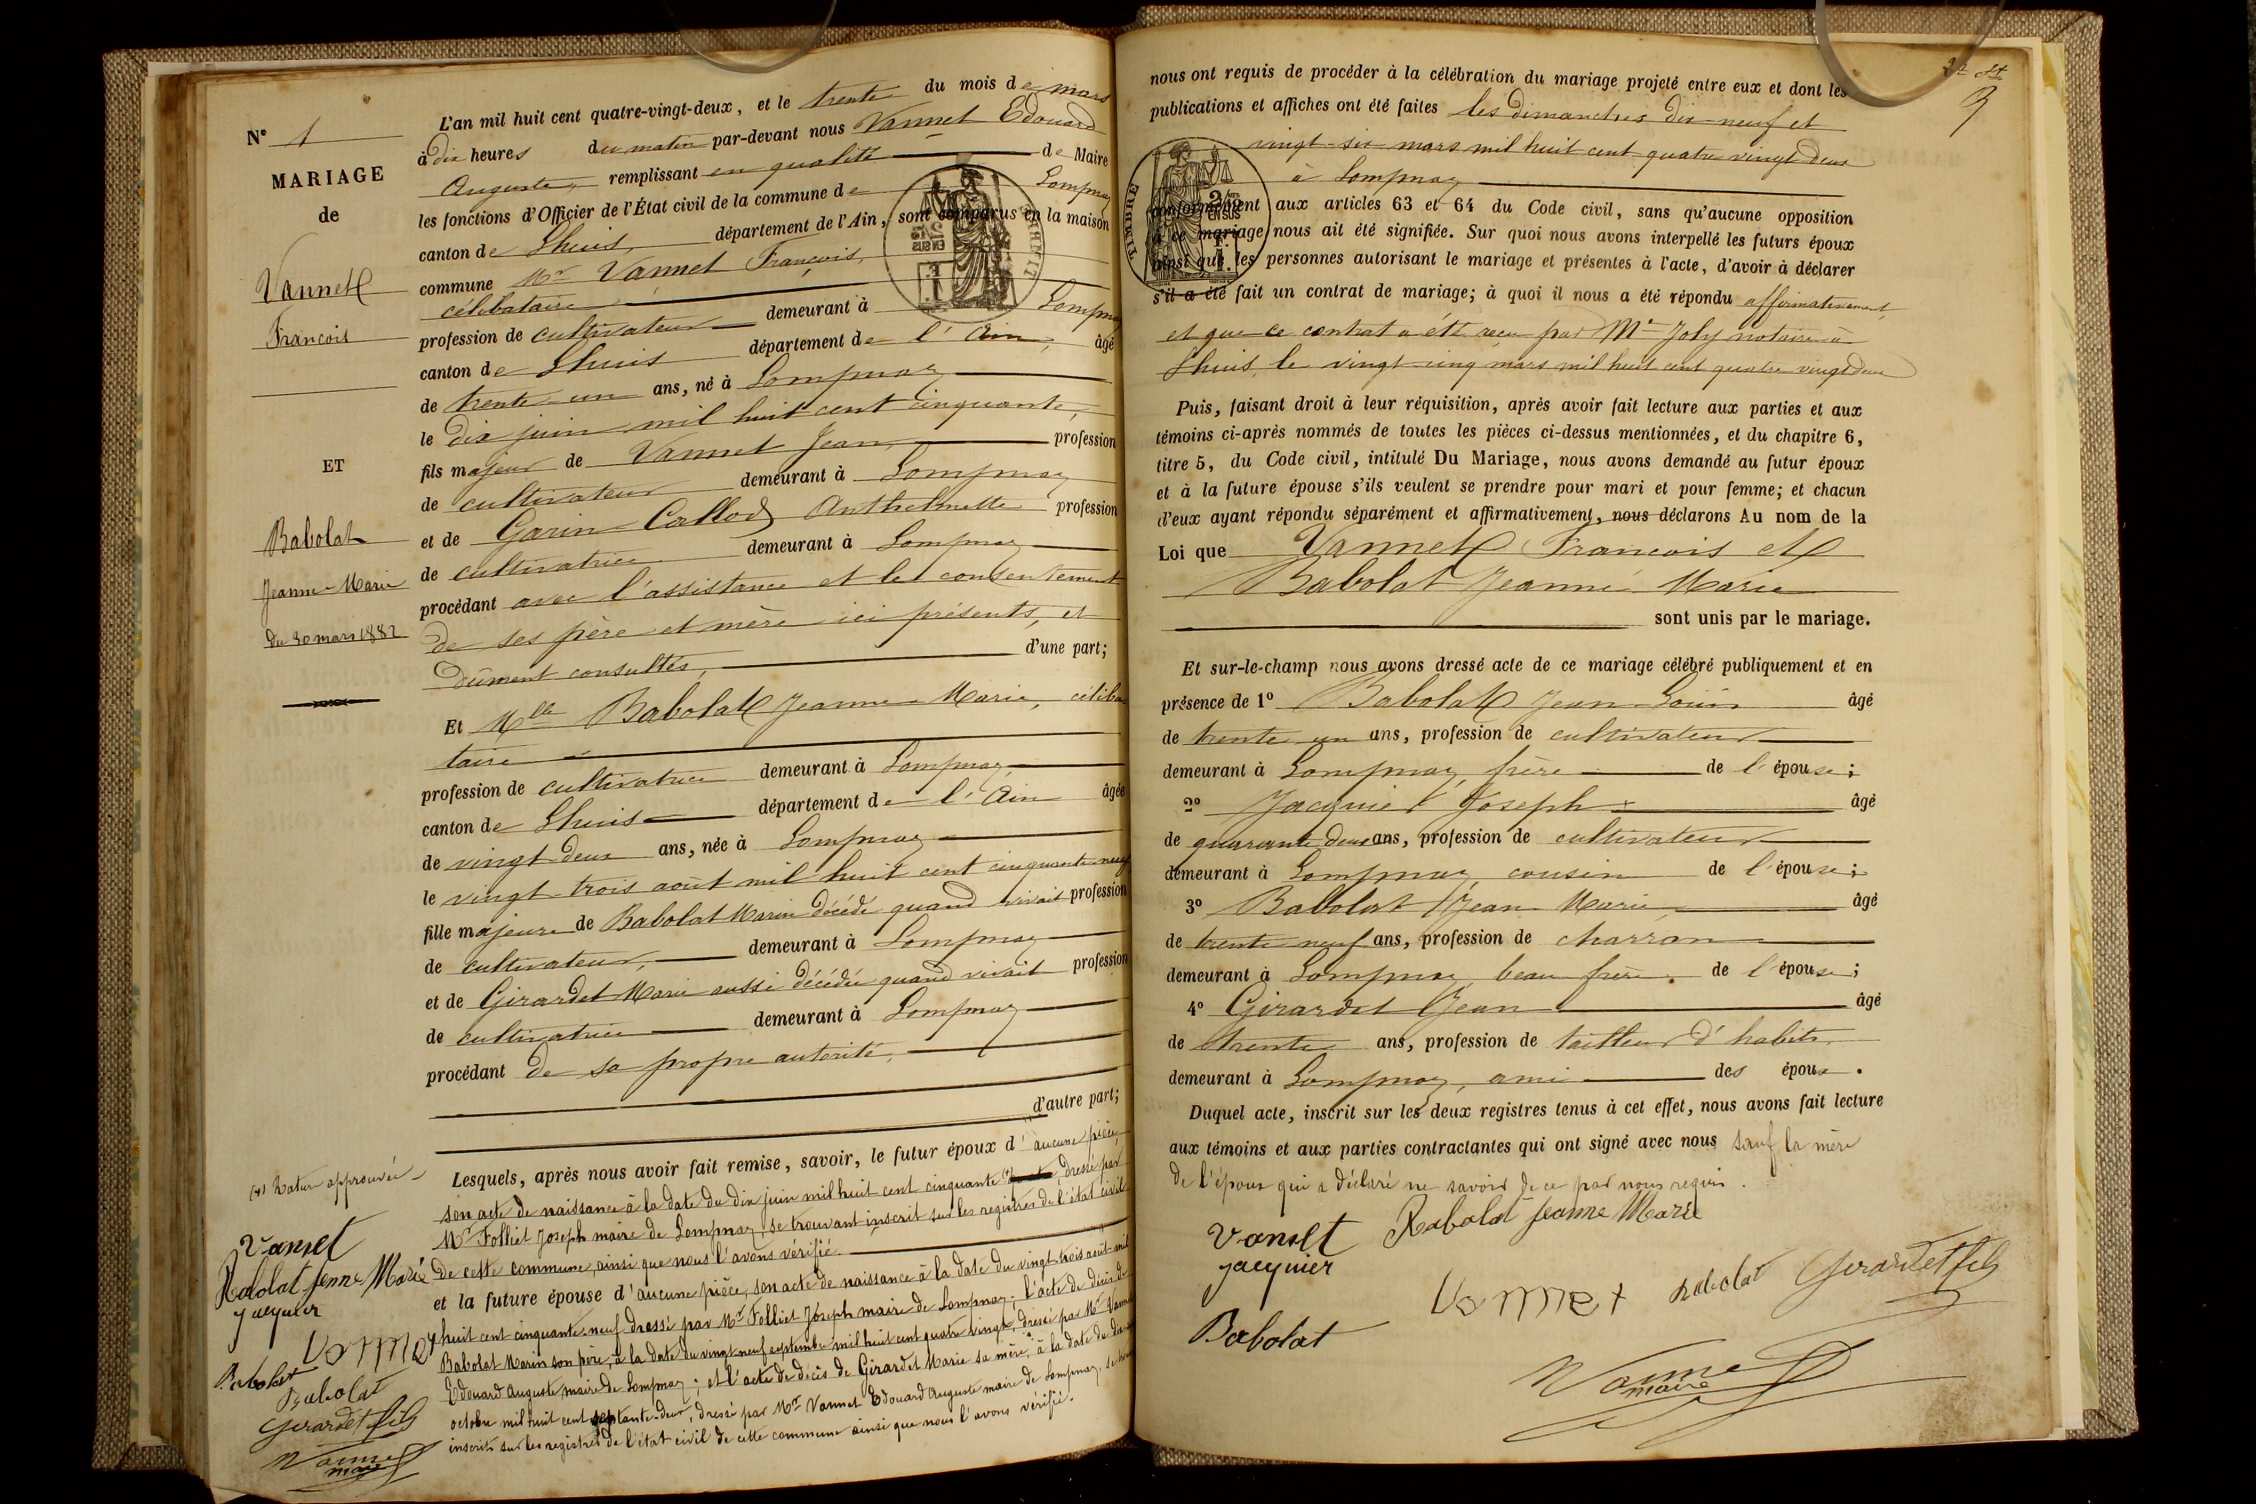 N° 1
MARIAGE
de
Vannet
François
ET
Babolat
Jeanne-Marie
du 30 mars 1882
L'an mil huit cent quatre-vingt-deux, et le trente du mois de mars
à dix heures du matin par-devant nous Vannet Edouard
Auguste, remplissant en qualité de Maire
les fonctions d'Officier de l'État civil de la commune de Lompnaz
canton de Lhuis, département de l'Ain, sont comparus en la maison
commune Mr Vannet François,
célibataire
profession de cultivateur demeurant à Lompnaz
canton de Lhuis département de l'Ain, âgé
de trente-un ans, né à Lompnaz
le dix juin mil huit cent cinquante,
fils majeur de Vannet Jean, profession
de cultivateur demeurant à Lompnaz
et de Garin-Callod Anthelmette profession
de cultivatrice demeurant à Lompnaz
procédant avec l'assistance et le consentement
de ses père et mère ici présents, et
dûment consultés, d'une part;
Et Mlle Babolat Jeanne-Marie, céliba
taire
profession de cultivatrice demeurant à Lompnaz,
canton de Lhuis département de l'Ain âgée
de vingt-deux ans, née à Lompnaz
le vingt-trois août mil huit cent cinquante-neuf
fille majeure de Babolat Marin décédé quand vivait profession
de cultivateur, demeurant à Lompnaz
et de Girardet Marie aussi décédée quand vivait profession
de cultivatrice demeurant à Lompnaz
procédant de sa propre autorité,
d'autre part;
Lesquels, après nous avoir fait remise, savoir, le futur époux d'aucune pièce,
son acte de naissance à la date du dix juin mil huit cent cinquante (+), dressé par
Mr Folliet Joseph maire de Lompnaz, se trouvant inscrit sur les registres de l'état civil
de cette commune, ainsi que nous l'avons vérifié.
et la future épouse d'aucune pièce, son acte de naissance à la date du vingt-trois août mil
huit cent cinquante-neuf dressé par Mr Folliet Joseph maire de Lompnaz; l'acte de décès de
Babolat Marin son père, à la date du vingt neuf septembre mil huit cent quatre vingt, dressé par Mr Vannet
Edouard Auguste maire de Lompnaz; et l'acte de décès de Girardet Marie sa mère, à la date du
octobre mil huit cent septante-deux, dressé par Mr Vannet Edouard Auguste maire de Lompnaz,
inscrits sur les registres de l'état civil de cette commune ainsi que nous l'avons vérifié.
(+) Rature approuvée
Vanset
Babolat Jenne Marie
Jacquier
Vannet
Babolat
Babolat
Girardet fils
Vannet
maire
3
nous ont requis de procéder à la célébration du mariage projeté entre eux et dont les
publications et affiches ont été faites les dimanches dix-neuf et
vingt-six mars mil huit cent quatre vingt deux
à Lompnaz
TIMBRE
2/10
EN SUS
conformément aux articles 63 et 64 du Code civil, sans qu'aucune opposition
à ce mariage nous ait été signifiée. Sur quoi nous avons interpellé les futurs époux
ainsi que les personnes autorisant le mariage et présentes à l'acte, d'avoir à déclarer
s'il a été fait un contrat de mariage; à quoi il nous a été répondu affirmativement,
et que ce contrat a été reçu par Me Joly notaire à
Lhuis, le vingt-cinq mars mil huit cent quatre vingt deux
Puis, faisant droit à leur réquisition, après avoir fait lecture aux parties et aux
témoins ci-après nommés de toutes les pièces ci-dessus mentionnées, et du chapitre 6,
titre 5, du Code civil, intitulé Du Mariage, nous avons demandé au futur époux
et à la future épouse s'ils veulent se prendre pour mari et pour femme; et chacun
d'eux ayant répondu séparément et affirmativement, nous déclarons Au nom de la
Loi que Vannet François et
Babolat Jeanne Marie
sont unis par le mariage.
Et sur-le-champ nous avons dressé acte de ce mariage célébré publiquement et en
présence de 1° Babolat Jean-Louis âgé
de trente un ans, profession de cultivateur
demeurant à Lompnaz, frère de l'épouse;
2° Jacquier Joseph âgé
de quarante deux ans, profession de cultivateur
demeurant à Lompnaz, cousin de l'épouse;
3° Babolat Jean Marie, âgé
de trente neuf ans, profession de charron
demeurant à Lompnaz, beau frère de l'épouse;
4° Girardet Jean âgé
de trente ans, profession de tailleur d'habits
demeurant à Lompnaz, ami des époux.
Duquel acte, inscrit sur les deux registres tenus à cet effet, nous avons fait lecture
aux témoins et aux parties contractantes qui ont signé avec nous sauf la mère
de l'époux qui a déclaré ne savoir de ce par nous requis.
Vanset Babolat Jeanne Marie
Jacquier
Vannet Babolat Girardet fils
Babolat
Vannet
maire